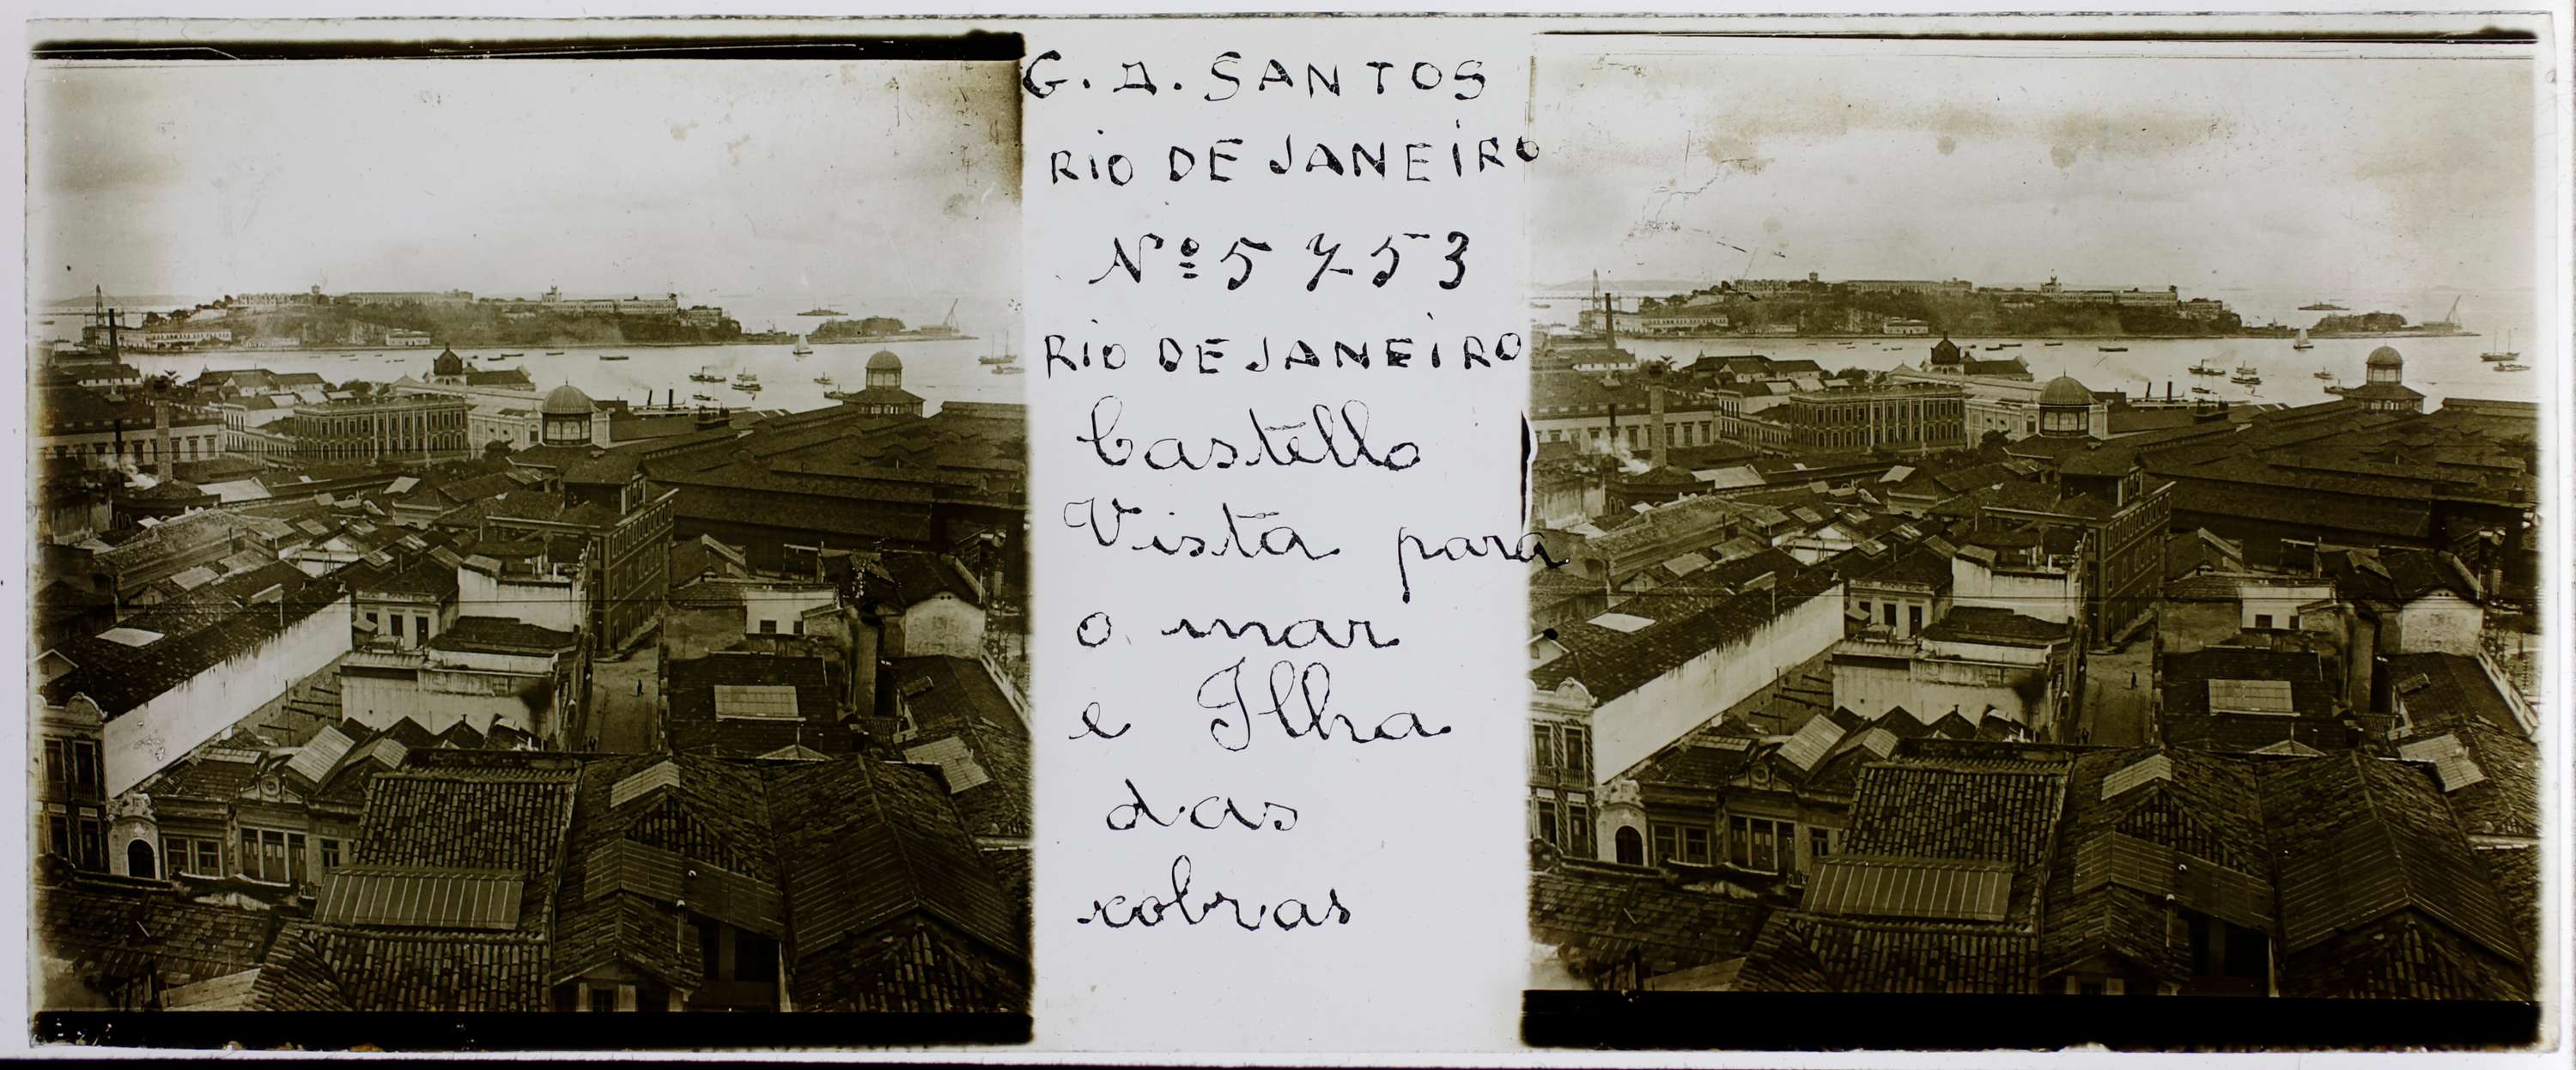 G. A. SANTOS
RIO DE JANEIRO
Nº 5753
RIO DE JANEIRO
Castello
Vista para
o mar
e Ilha
das
cobras